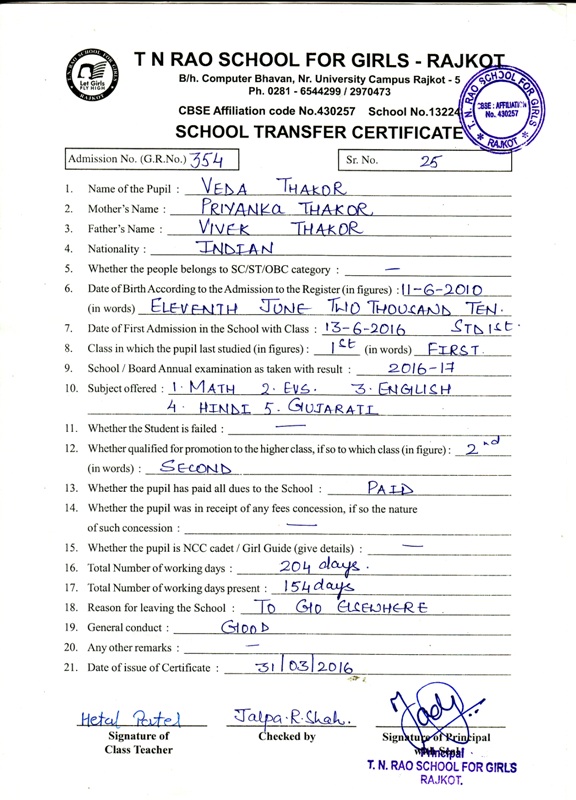 T. N. RAO SCHOOL FOR GIRLS
Let Girls
FLY HIGH
RAJKOT
T N RAO SCHOOL FOR GIRLS - RAJKOT
B/h. Computer Bhavan, Nr. University Campus Rajkot - 5
Ph. 0281 - 6544299 / 2970473
CBSE Affiliation code No.430257 School No.13224
T. N. RAO SCHOOL FOR GIRLS
CBSE : AFFILIATION
No. 430257
RAJKOT
SCHOOL TRANSFER CERTIFICATE
Admission No. (G.R.No.) 354 Sr. No. 25
1. Name of the Pupil : VEDA THAKOR
2. Mother's Name : PRIYANKA THAKOR
3. Father's Name : VIVEK THAKOR
4. Nationality : INDIAN
5. Whether the people belongs to SC/ST/OBC category : —
6. Date of Birth According to the Admission to the Register (in figures) : 11-6-2010
(in words) ELEVENTH JUNE TWO THOUSAND TEN.
7. Date of First Admission in the School with Class : 13-6-2016 STD 1st.
8. Class in which the pupil last studied (in figures) : 1st (in words) FIRST.
9. School / Board Annual examination as taken with result : 2016-17
10. Subject offered : 1. MATH 2. EVS. 3. ENGLISH
4. HINDI 5. GUJARATI
11. Whether the Student is failed : —
12. Whether qualified for promotion to the higher class, if so to which class (in figure) : 2nd
(in words) : SECOND
13. Whether the pupil has paid all dues to the School : PAID
14. Whether the pupil was in receipt of any fees concession, if so the nature
of such concession : —
15. Whether the pupil is NCC cadet / Girl Guide (give details) : —
16. Total Number of working days : 204 days.
17. Total Number of working days present : 154 days
18. Reason for leaving the School : TO GO ELSEWHERE
19. General conduct : GOOD
20. Any other remarks : —
21. Date of issue of Certificate : 31/03/2016
Hetal Patel Jalpa.R.Shah.
Signature of Checked by Signature of Principal
Class Teacher with Seal
Principal
T. N. RAO SCHOOL FOR GIRLS
RAJKOT.